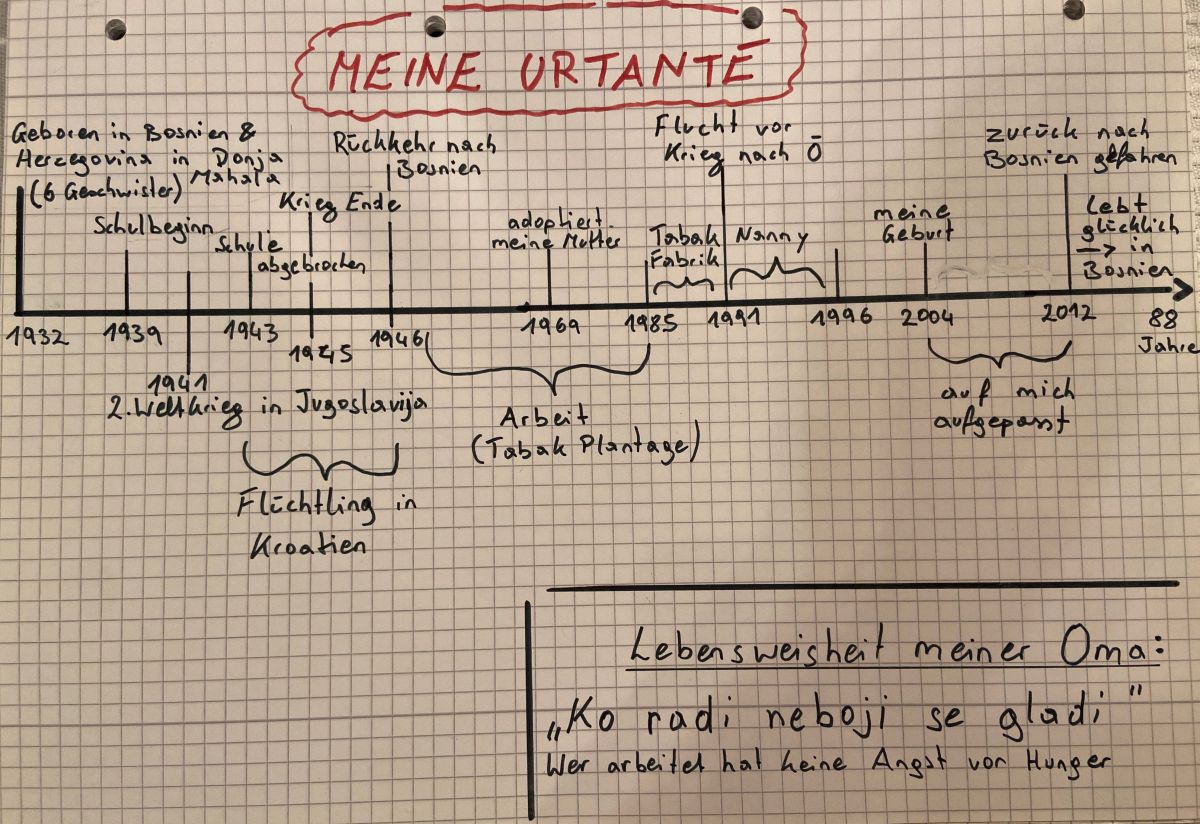 MEINE URTANTE
Geboren in Bosnien &
Hercegovina in Donja
Mahala
(6 Geschwister)
Schulbeginn
Schule
abgebrochen
Krieg Ende
Rückkehr nach
Bosnien
adoptiert
meine Mutter
Tabak
Fabrik
Flucht vor
Krieg nach Ö
Nanny
meine
Geburt
zurück nach
Bosnien gefahren
Lebt
glücklich
→ in
Bosnien
1932
1939
1941
1943
1945
1946
1969
1985
1991
1996
2004
2012
88
Jahre
2. Weltkrieg in Jugoslavija
Flüchtling in
Kroatien
Arbeit
(Tabak Plantage)
auf mich
aufgepasst
Lebensweisheit meiner Oma:
„Ko radi neboji se gladi"
Wer arbeitet hat keine Angst vor Hunger